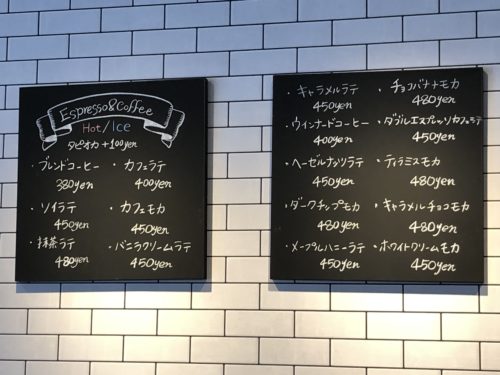 Espresso&Coffee
Hot/Ice
タピオカ+100yen
・ブレンドコーヒー
380yen
・カフェラテ
400yen
・ソイラテ
450yen
・カフェモカ
450yen
・抹茶ラテ
480yen
・バニラクリームラテ
450yen
・キャラメルラテ
450yen
・チョコバナナモカ
480yen
・ウインナードコーヒー
400yen
・ダブルエスプレッソカフェラテ
450yen
・ヘーゼルナッツラテ
450yen
・ティラミスモカ
480yen
・ダークチップモカ
480yen
・キャラメルチョコモカ
480yen
・メープルハニーラテ
450yen
・ホワイトクリームモカ
450yen